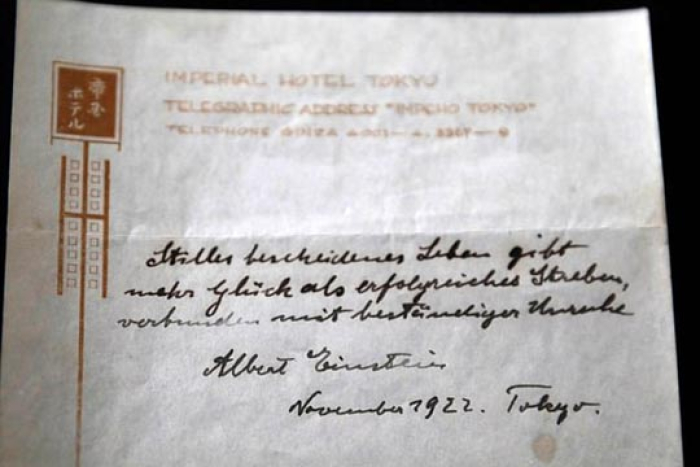 帝国
ホテル
IMPERIAL HOTEL TOKYO
TELEGRAPHIC ADDRESS "IMPEHO TOKYO"
TELEPHONE GINZA
Stilles bescheidenes Leben gibt
mehr Glück als erfolgreiches Streben,
verbunden mit beständiger Unruhe
Albert Einstein
November 1922. Tokyo.